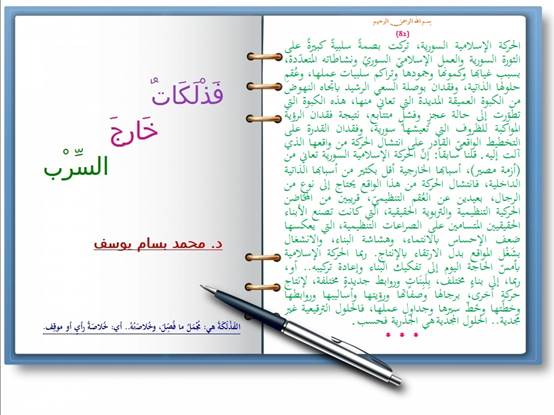 بسم الله الرحمن الرحيم
(82)
الحركة الإسلامية السورية، تركت بصمةً سلبيةً كبيرةً على
الثورة السورية والعمل الإسلاميّ السوريّ ونشاطاته المتعدّدة،
بسبب غيابها وكمونها وجمودها وتراكم سلبيات عملها، وعُقم
حلولها الذاتية، وفقدان بوصلة السعي الرشيد باتجاه النهوض
من الكبوة العميقة المديدة التي تعاني منها، هذه الكبوة التي
تطوّرت إلى حالة عجزٍ وفشلٍ متتابع، نتيجة فقدان الرؤية
المواكبة للظروف التي تعيشها سورية، وفقدان القدرة على
التخطيط الواقعيّ القادر على انتشال الحركة من واقعها الذي
آلت إليه. قلنا سابقاً: إنّ الحركة الإسلامية السورية تعاني من
(أزمة مصير)، أسبابها الخارجية أقل بكثير من أسبابها الذاتية
الداخلية، فانتشال الحركة من هذا الواقع يحتاج إلى نوع من
الرجال، بعيدين عن العُقم التنظيميّ، قريبين من المحاضن
الحركية التنظيمية والتربوية الحقيقية، التي كانت تصنع الأبناء
الحقيقيين المتسامين على الصراعات التنظيمية، التي يعكسها
ضعف الإحساس بالانتماء، وهشاشة البناء، والانشغال
بشغل المواقع بدل الارتقاء بالإنتاج. ربما الحركة الإسلامية
بأمسّ الحاجة اليوم إلى تفكيك البناء وإعادة تركيبه.. أو،
ربما، إلى بناءٍ مختلف، بلَبِناتٍ وروابط جديدةٍ مختلفة، لإنتاج
حركةٍ أخرى، برجالها وصفاتها ورؤيتها وأساليبها وروابطها
وخطتها وخطّ سيرها وجداول عملها، فالحلول الترقيعية غير
مجدية.. الحلول المجدية هي الجذرية فحسب.
* * *
فَذْلَكَاتٌ
خَارِجَ
السِّرْب
د. محمد بسام يوسف
الفَذْلَكَةُ هي: مُجْمَلُ ما فُصِّلَ، وخُلاصَتُهُ.. أي: خُلاصَةُ رأيٍ أو موقِف.